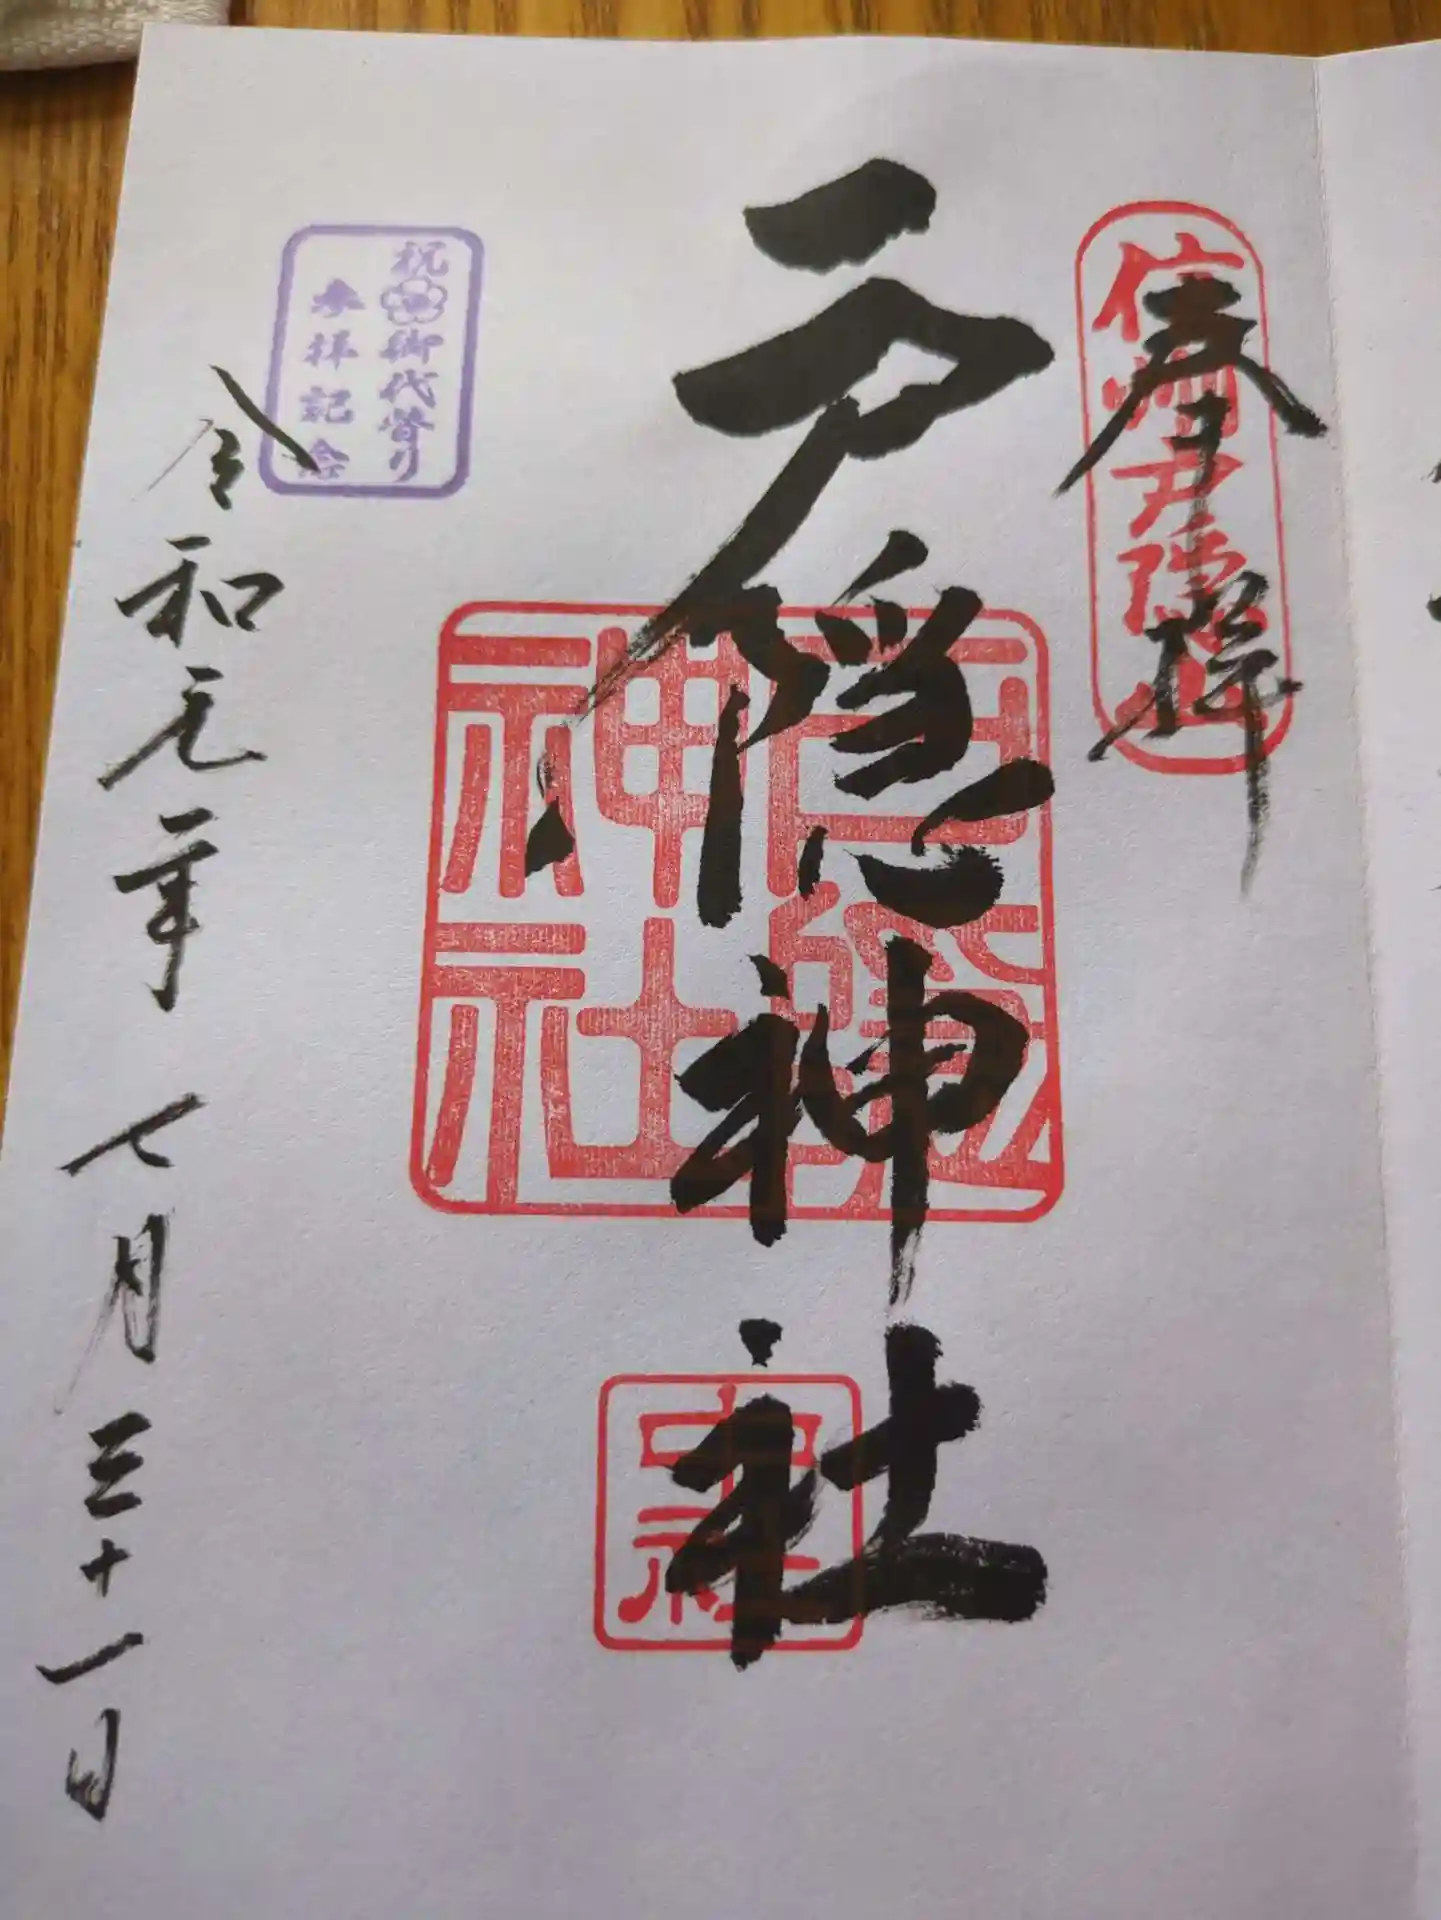 奉拝
信州戸隠山
戸隠神社
戸隠
神社
中社
祝御代替り
参拝記念
令和元年七月三十一日